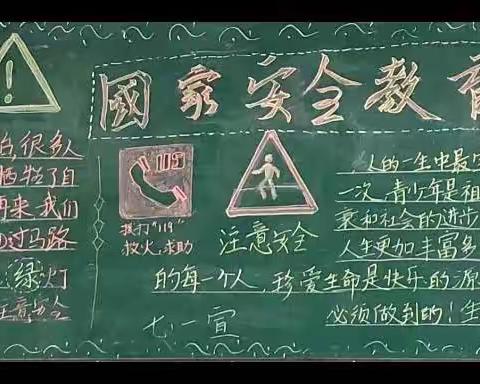 國家安全教育
很多
牺牲了自
再来 我们
过马路
绿灯
注意安全
119
拨打"119"
救火,求助
注意安全
人的一生中最宝
一次 青少年是祖
衰和社会的进步
人生更加丰富多
的每一个人,珍爱生命是快乐的源
必须做到的!生
七·一宣